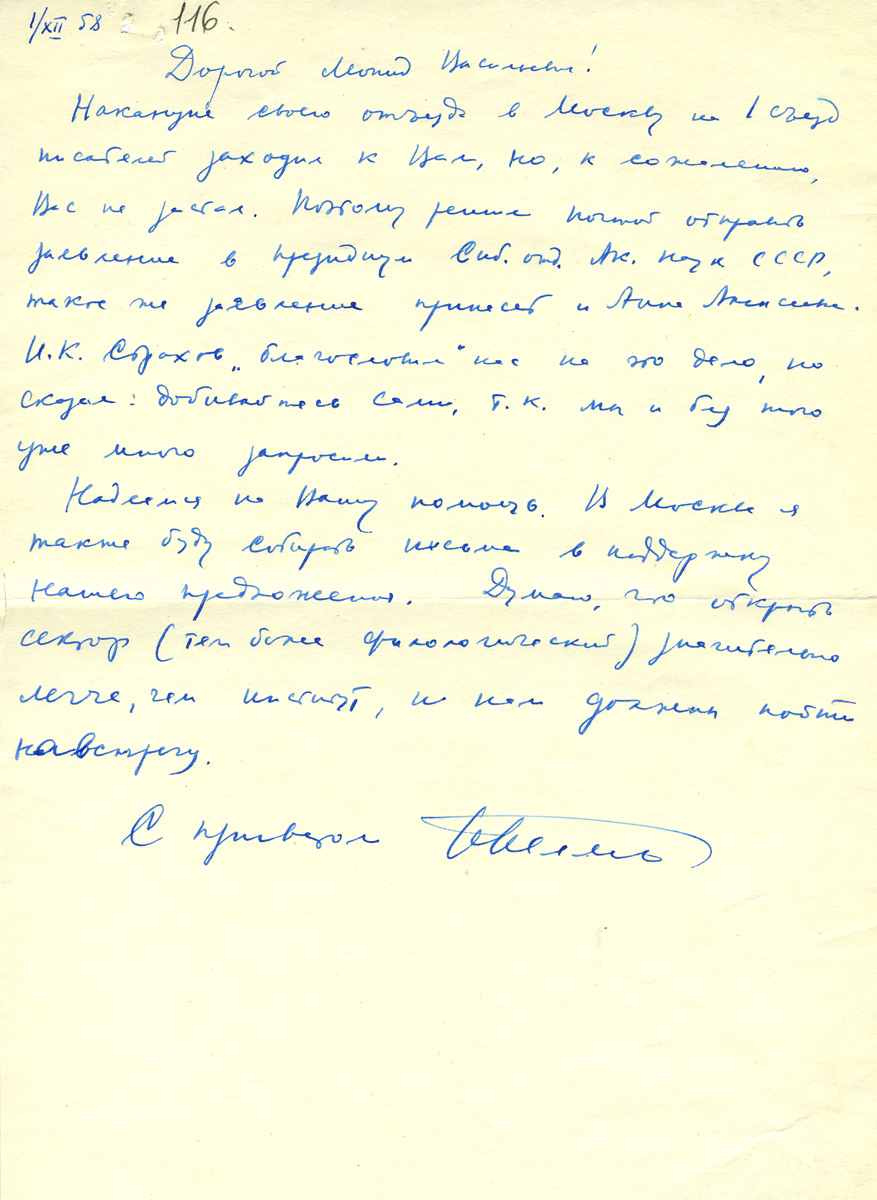 1/XII 58 116.
Дорогой Леонид Васильевич!
Накануне своего отъезда в Москву на I съезд
писателей заходил к Вам, но, к сожалению,
Вас не застал. Поэтому решил почтой отправить
заявление в президиум Сиб. отд. Ак. наук СССР,
такое же заявление принесет и Анна Алексеевна.
И.К. Страхов „благословил" нас на это дело, но
сказал: добивайтесь сами, т.к. мы и без того
уже много запросили.
Надеемся на Вашу помощь. В Москве я
также буду собирать письма в поддержку
нашего предложения. Думаю, что открыть
сектор (тем более филологический) значительно
легче, чем институт, и нам должны пойти
навстречу.
С приветом